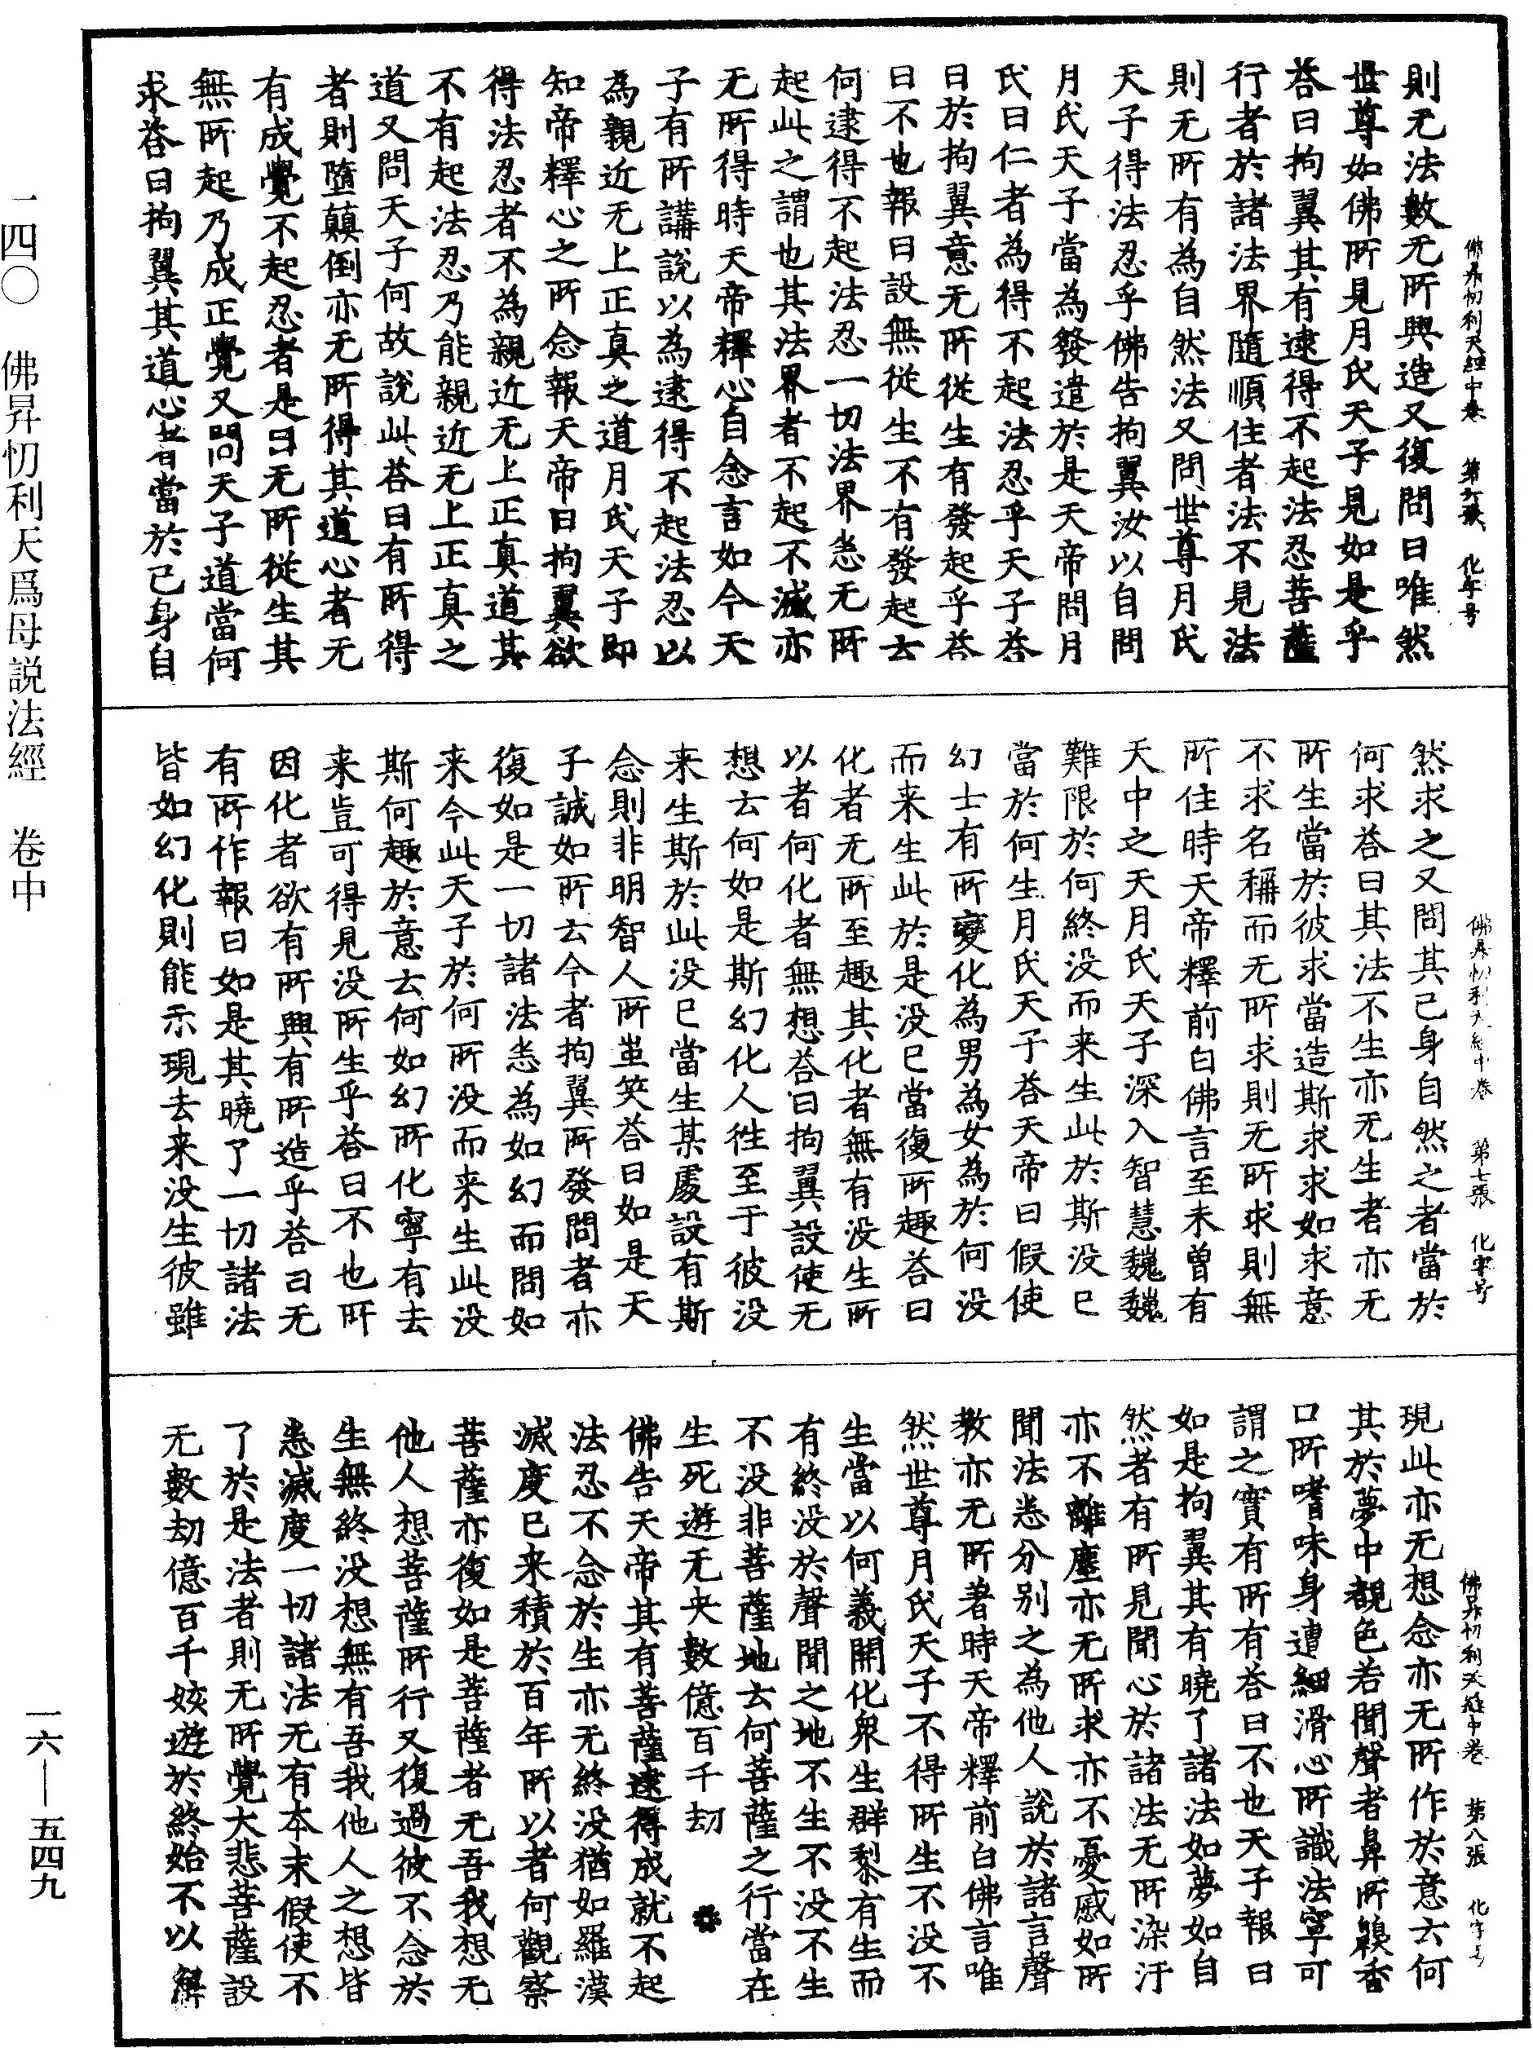 則无法數无所興造又復問曰唯然
世尊如佛所見月氏天子見如是乎
荅曰拘翼其有逮得不起法忍菩薩
行者於諸法界隨順住者法不見法
則无所有為自然法又問世尊月氏
天子得法忍乎佛告拘翼汝以自問
月氏天子當為發遣於是天帝問月
氏曰仁者為得不起法忍乎天子荅
曰於拘翼意无所從生有發起乎荅
曰不也報曰設無從生不有發起云
何逮得不起法忍一切法界悉无所
起此之謂也其法界者不起不滅亦
无所得時天帝釋心自念言如今天
子有所講說以為逮得不起法忍以
為親近无上正真之道月氏天子即
知帝釋心之所念報天帝曰拘翼欲
得法忍者不為親近无上正真道其
不有起法忍乃能親近无上正真之
道又問天子何故說此荅曰有所得
者則墮顛倒亦无所得其道心者无
有成覺不起忍者是曰无所從生其
無所起乃成正覺又問天子道當何
求荅曰拘翼其道心者當於己身自
佛昇忉利天經中卷 第六張 化字号
然求之又問其己身自然之者當於
何求荅曰其法不生亦无生者亦无
所生當於彼求當造斯求求如求意
不求名稱而无所求則无所求則無
所住時天帝釋前白佛言至未曾有
天中之天月氏天子深入智慧巍巍
難限於何終没而来生此於斯没已
當於何生月氏天子荅天帝曰假使
幻士有所變化為男為女為於何没
而来生此於是没已當復所趣荅曰
化者无所至趣其化者無有没生所
以者何化者無想荅曰拘翼設使无
想云何如是斯幻化人徃至于彼没
来生斯於此没已當生某處設有斯
念則非明智人所蚩笑荅曰如是天
子誠如所云今者拘翼所發問者亦
復如是一切諸法悉為如幻而問如
来今此天子於何所没而来生此没
斯何趣於意云何如幻所化寧有去
来豈可得見没所生乎荅曰不也所
因化者欲有所興有所造乎荅曰无
有所作報曰如是其曉了一切諸法
皆如幻化則能示現去来没生彼雖
佛昇忉利天經中卷 第七張 化字号
現此亦无想念亦无所作於意云何
其於夢中覩色若聞聲者鼻所齅香
口所嗜味身遭細滑心所識法寧可
謂之實有所有荅曰不也天子報曰
如是拘翼其有曉了諸法如夢如自
然者有所見聞心於諸法无所染汙
亦不離塵亦无所求亦不憂慼如所
聞法悉分別之為他人說於諸言聲
教亦无所著時天帝釋前白佛言唯
然世尊月氏天子不得所生不没不
生當以何義開化衆生群黎有生而
有終没於聲聞之地不生不没不生
不没非菩薩地云何菩薩之行當在
生死遊无央數億百千劫
佛告天帝其有菩薩逮得成就不起
法忍不念於生亦无終没猶如羅漢
滅度已来積於百年所以者何觀察
菩薩亦復如是菩薩者无吾我想无
他人想菩薩所行又復過彼不念於
生無終没想無有吾我他人之想皆
悉滅度一切諸法无有本末假使不
了於是法者則无所覺大悲菩薩設
无數劫億百千姟遊於終始不以懈
佛昇忉利天經中卷 第八張 化字号
一四〇 佛昇忉利天爲母説法經 卷中
一六—五四九